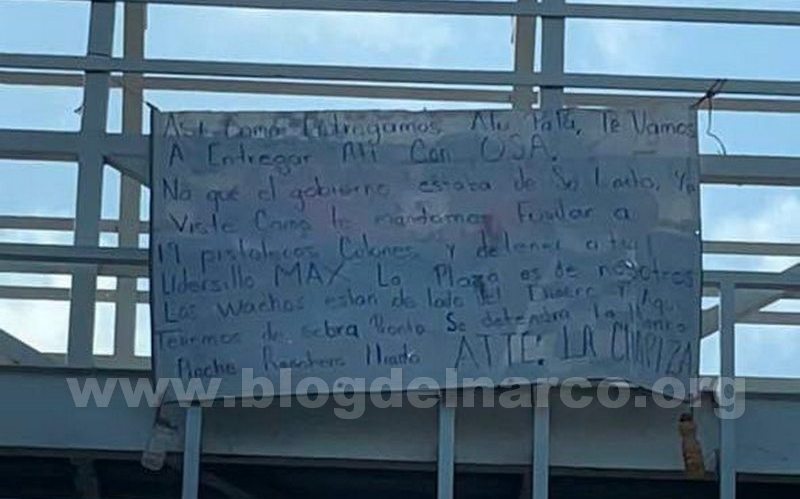 Asi Como Entregamos Atu Papá, Te Vamos
A Entregar Ati Con USA.
No que el gobierno estava de Su Lado, Ya
Viste Como te mandamos Fusilar a
19 pistolocos Culones y detener a tu
Lidersillo MAY La Plaza es de nosotros
Los wachos estan de lado del Dinero Y Aqui
Tenemos de sobra Pronto Se detendra la
ATTE: LA CHAPIZA
www.blogdelnarco.org